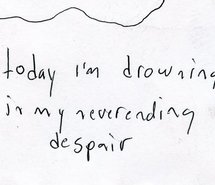 today i'm drowning
in my neverending
despair